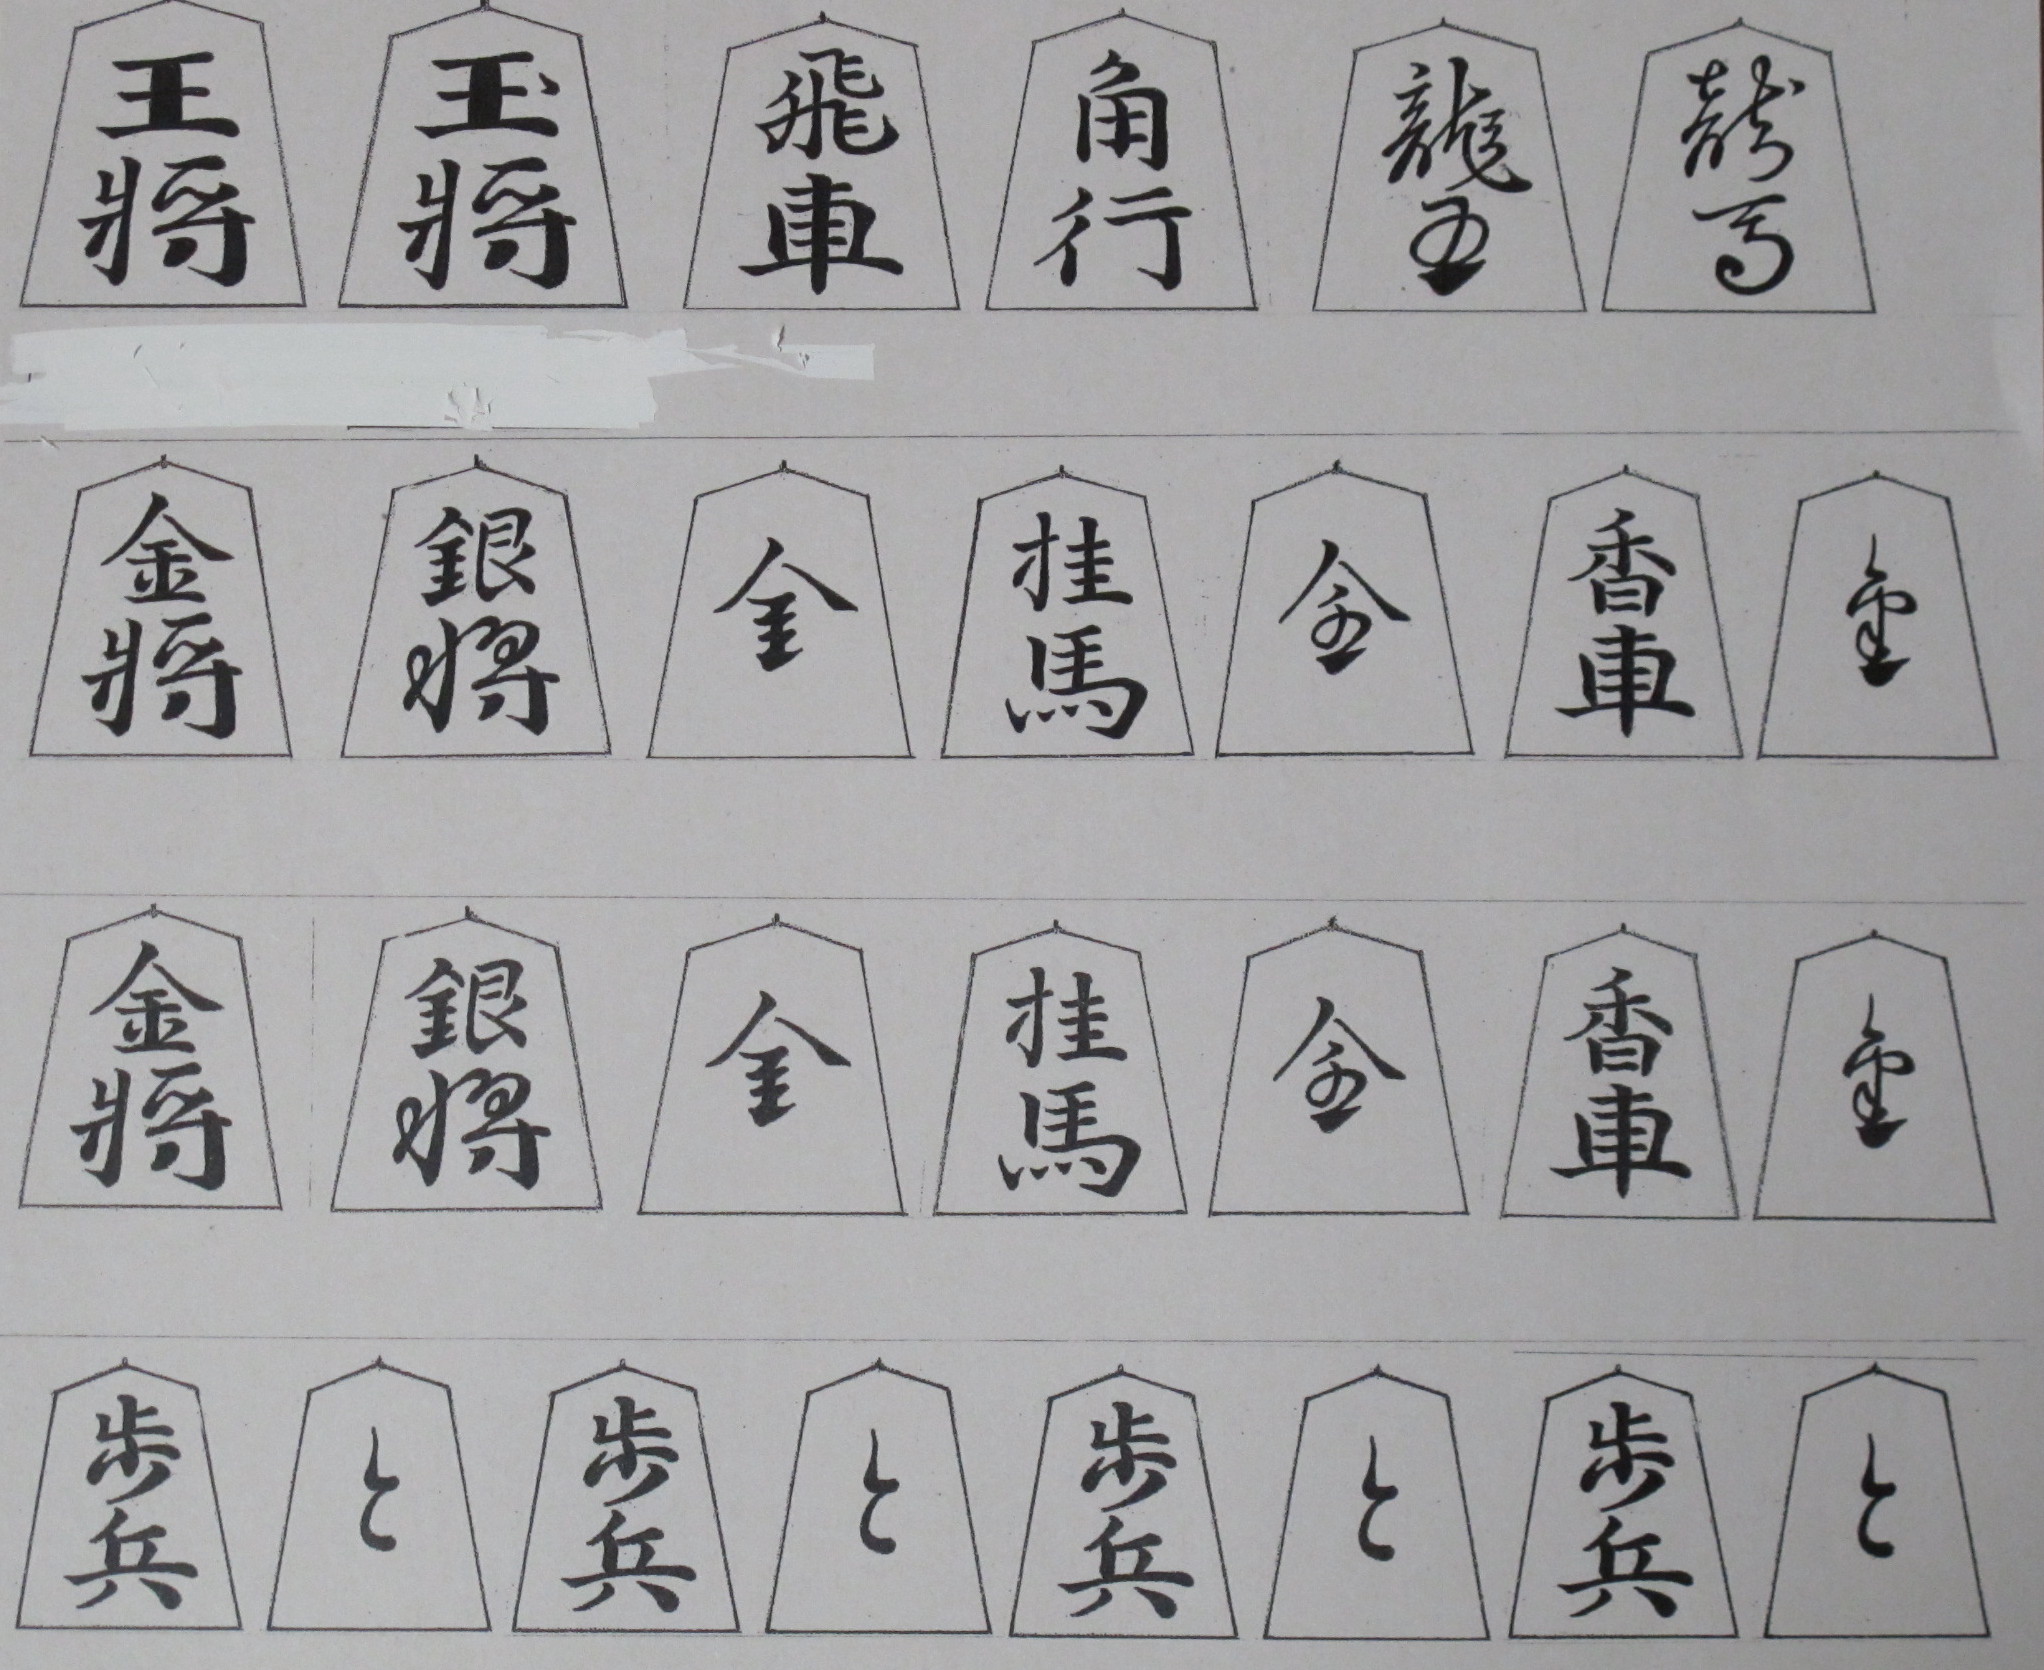 王将 玉将 飛車 角行 龍王 龍馬
金将 銀将 全 桂馬 今 香車 金
金将 銀将 全 桂馬 今 香車 金
歩兵 と 歩兵 と 歩兵 と 歩兵 と